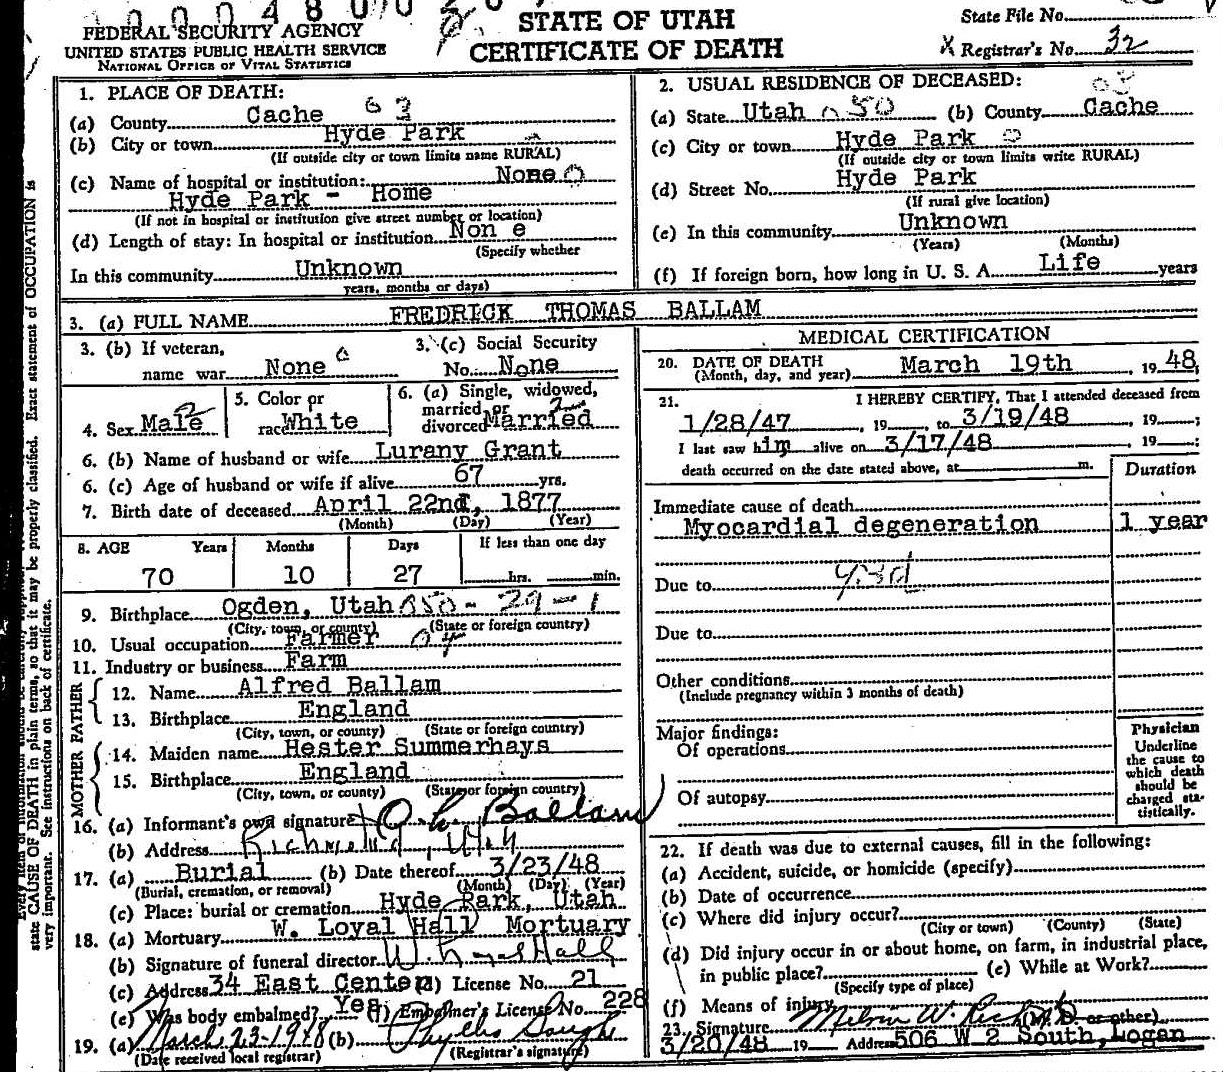 FEDERAL SECURITY AGENCY
UNITED STATES PUBLIC HEALTH SERVICE
NATIONAL OFFICE OF VITAL STATISTICS
STATE OF UTAH
CERTIFICATE OF DEATH
State File No.
X Registrar's No. 32
1. PLACE OF DEATH:
(a) County Cache 63
(b) City or town Hyde Park
(If outside city or town limits name RURAL)
(c) Name of hospital or institution: None
Hyde Park - Home
(If not in hospital or institution give street number or location)
(d) Length of stay: In hospital or institution Non e
(Specify whether
In this community Unknown
years, months or days)
2. USUAL RESIDENCE OF DECEASED:
(a) State Utah 050 (b) County Cache
(c) City or town Hyde Park
(If outside city or town limits write RURAL)
(d) Street No. Hyde Park
(If rural give location)
(e) In this community Unknown
(Years) (Months)
(f) If foreign born, how long in U. S. A. Life years
3. (a) FULL NAME FREDRICK THOMAS BALLAM
3. (b) If veteran,
name war None
3. (c) Social Security
No. None
4. Sex Male
5. Color or
race White
6. (a) Single, widowed,
married or
divorced Married
6. (b) Name of husband or wife Lurany Grant
6. (c) Age of husband or wife if alive 67 yrs.
7. Birth date of deceased April 22nd, 1877
(Month) (Day) (Year)
8. AGE Years Months Days If less than one day
70 10 27 hrs. min.
9. Birthplace Ogden, Utah 050-29-1
(City, town, or county) (State or foreign country)
10. Usual occupation Farmer
11. Industry or business Farm
FATHER
12. Name Alfred Ballam
13. Birthplace England
(City, town, or county) (State or foreign country)
MOTHER
14. Maiden name Hester Summerhays
15. Birthplace England
(City, town, or county) (State or foreign country)
16. (a) Informant's own signature O. L. Ballam
(b) Address Richmond, Utah
17. (a) Burial (b) Date thereof 3/23/48
(Burial, cremation, or removal) (Month) (Day) (Year)
(c) Place: burial or cremation Hyde Park, Utah
18. (a) Mortuary W. Loyal Hall Mortuary
(b) Signature of funeral director W. Loyal Hall
(c) Address 34 East Center (d) License No. 21
(e) Was body embalmed? Yes (f) Embalmer's License No. 228
19. (a) March 23-1948 (b) Phyllis
(Date received local registrar) (Registrar's signature)
MEDICAL CERTIFICATION
20. DATE OF DEATH March 19th, 1948,
(Month, day, and year)
21. I HEREBY CERTIFY, That I attended deceased from
1/28/47, 19 to 3/19/48, 19 ;
I last saw him alive on 3/17/48, 19 ;
death occurred on the date stated above, at m.
Duration
Immediate cause of death
Myocardial degeneration 1 year
Due to
Due to
Other conditions
(Include pregnancy within 3 months of death)
Major findings:
Of operations
Of autopsy
Physician
Underline
the cause to
which death
should be
charged sta-
tistically.
22. If death was due to external causes, fill in the following:
(a) Accident, suicide, or homicide (specify)
(b) Date of occurrence
(c) Where did injury occur?
(City or town) (County) (State)
(d) Did injury occur in or about home, on farm, in industrial place,
in public place? (e) While at Work?
(Specify type of place)
(f) Means of injury
23. Signature Melvin W. (M.D. or other)
3/20/48 19 Address 506 W 2 South, Logan
state CAUSE OF DEATH in plain terms, so that it may be properly classified. Exact statement of OCCUPATION is
very important. See instructions on back of certificate.